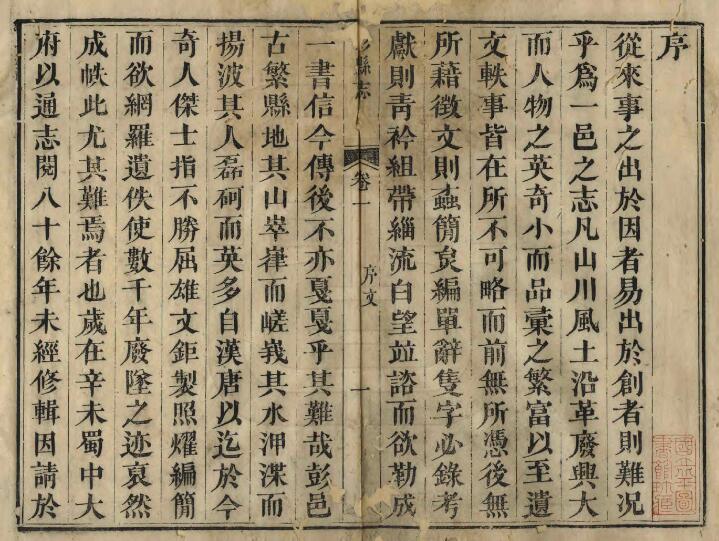 序
從來事之出於因者易出於創者則難況
乎爲一邑之志凡山川風土沿革廢興大
而人物之英奇小而品彙之繁富以至遺
文軼事皆在所不可略而前無所憑後無
所藉徵文則蟲簡𡙇編單辭隻字必錄考
獻則靑衿組帶緇流白望並諮而欲勒成
縣志
卷一
序文
一
一書信今傳後不亦戛戛乎其難哉彭邑
古繁縣地其山崒嵂而嵯峩其水泙渫而
揚波其人磊砢而英多自漢唐以迄於今
奇人傑士指不勝屈雄文鉅製照燿編簡
而欲網羅遺佚使數千年廢墜之迹裒然
成帙此尤其難焉者也歲在辛未蜀中大
府以通志閱八十餘年未經修輯因請於